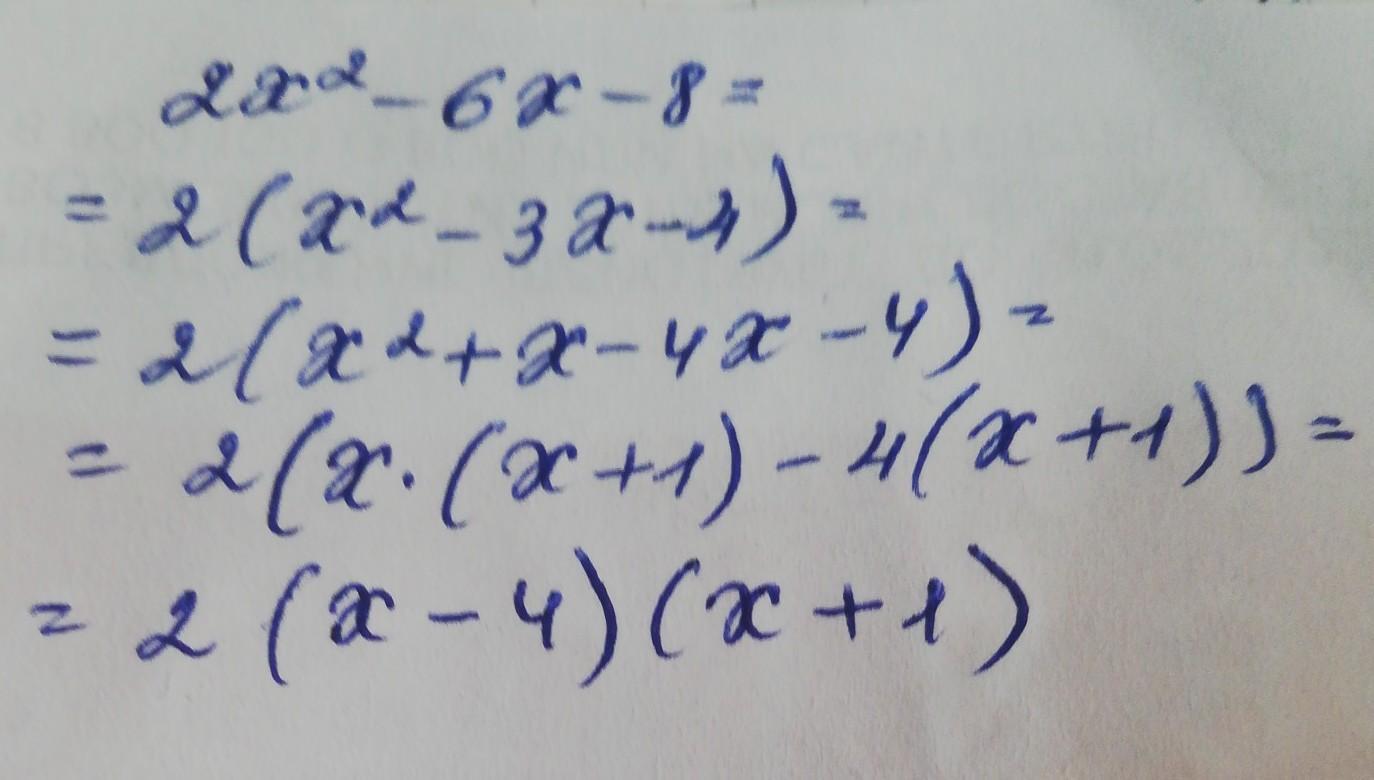 2x² - 6x - 8 =
= 2(x² - 3x - 4) =
= 2(x² + x - 4x - 4) =
= 2(x · (x + 1) - 4(x + 1)) =
= 2(x - 4)(x + 1)